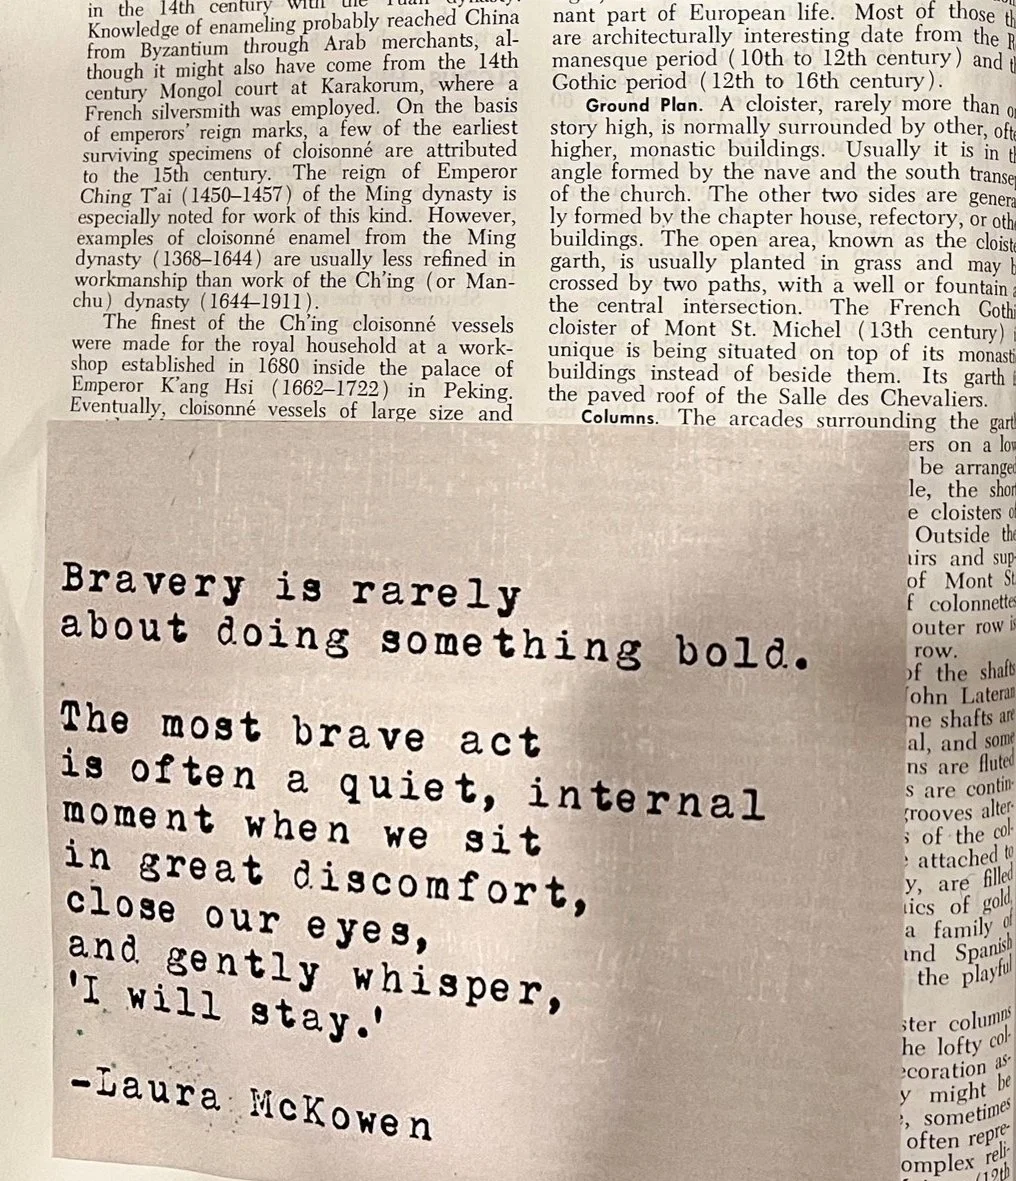 in the 14th century with the Yuan dynasty.
Knowledge of enameling probably reached China
from Byzantium through Arab merchants, al-
though it might also have come from the 14th
century Mongol court at Karakorum, where a
French silversmith was employed. On the basis
of emperors' reign marks, a few of the earliest
surviving specimens of cloisonné are attributed
to the 15th century. The reign of Emperor
Ching T'ai (1450–1457) of the Ming dynasty is
especially noted for work of this kind. However,
examples of cloisonné enamel from the Ming
dynasty (1368–1644) are usually less refined in
workmanship than work of the Ch'ing (or Man-
chu) dynasty (1644–1911).
The finest of the Ch'ing cloisonné vessels
were made for the royal household at a work-
shop established in 1680 inside the palace of
Emperor K'ang Hsi (1662–1722) in Peking.
Eventually, cloisonné vessels of large size and
nant part of European life. Most of those
are architecturally interesting date from the
manesque period (10th to 12th century) and
Gothic period (12th to 16th century).
Ground Plan. A cloister, rarely more than
story high, is normally surrounded by other,
higher, monastic buildings. Usually it is in
angle formed by the nave and the south
of the church. The other two sides are
ly formed by the chapter house, refectory, or
buildings. The open area, known as the
garth, is usually planted in grass and may
crossed by two paths, with a well or fountain
the central intersection. The French
cloister of Mont St. Michel (13th century)
unique is being situated on top of its
buildings instead of beside them. Its garth
the paved roof of the Salle des Chevaliers.
Columns. The arcades surrounding the
ers on a
be
the
cloisters
Outside
and sup-
of Mont
outer row is
row.
of the
shafts are
al, and some
are fluted
are contin-
alter-
of the col-
attached to
are filled
of gold,
a family of
Spanish
the playful
columns
lofty col-
as-
might be
sometimes
often repre-
reli-
Bravery is rarely
about doing something bold.
The most brave act
is often a quiet, internal
moment when we sit
in great discomfort,
close our eyes,
and gently whisper,
'I will stay.'
-Laura McKowen